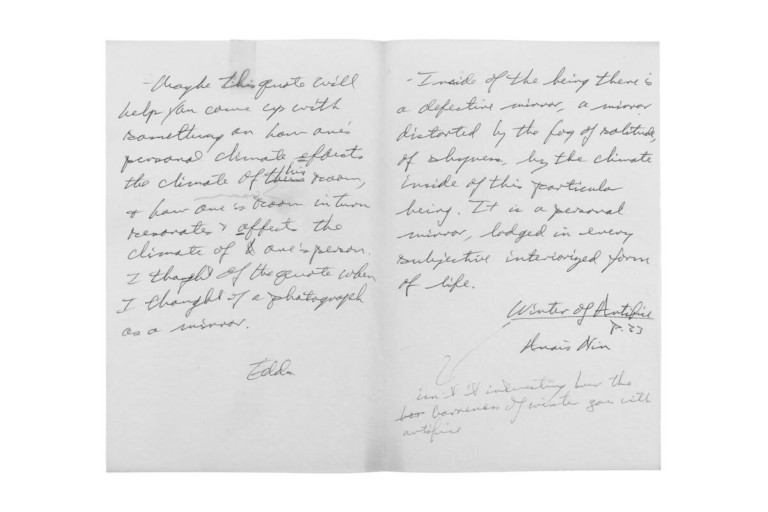 - Maybe this quote will
help you come up with
something on how one's
personal climate effects
the climate of this his room,
& how one's room in turn
resonates & affects the
climate of one's person.
I thought of the quote when
I thought of a photograph
as a mirror.
Edda
- Inside of the being there is
a defective mirror, a mirror
distorted by the fog of solitude,
of shyness, by the climate
inside of this particular
being. It is a personal
mirror, lodged in every
subjective interiorized form
of life.
Winter of Artifice
P.33
Anais Nin
isn't it interesting how the
barrenness of winter goes with
artifice